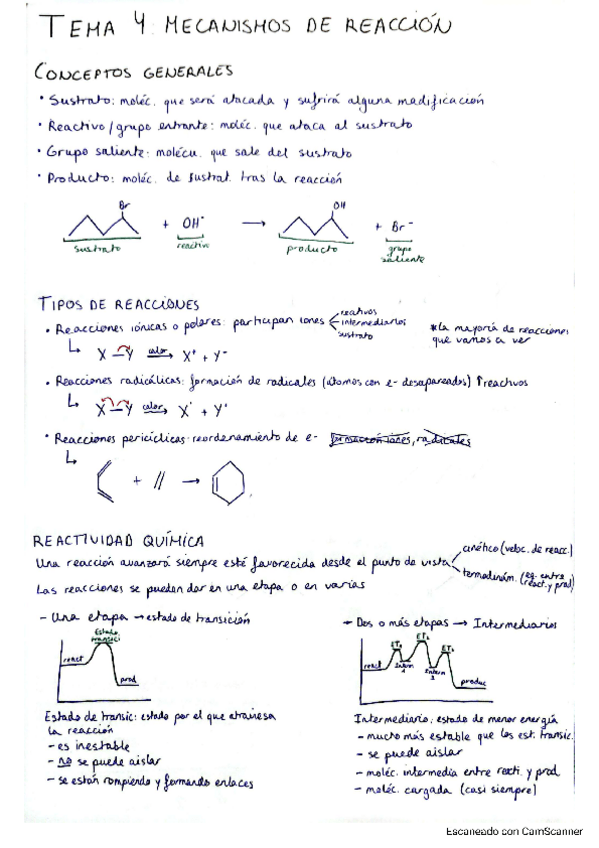 TEMA 4: MECANISMOS DE REACCIÓN
CONCEPTOS GENERALES
• Sustrato: moléc. que será atacada y sufrirá alguna modificación
• Reactivo/grupo entrante: moléc. que ataca al sustrato
• Grupo saliente: molécu. que sale del sustrato
• Producto: moléc. de sustrat. tras la reacción
Br OH
+ OH⁻ → + Br⁻
sustrato reactivo producto grupo saliente
TIPOS DE REACCIONES
• Reacciones iónicas o polares: participan iones
reactivos
intermediarios
sustrato
*La mayoría de reacciones
que vamos a ver
X—Y calor→ X⁺ + Y⁻
• Reacciones radicálicas: formación de radicales (átomos con e- desapareados) ↑reactivos
X—Y calor→ X· + Y·
• Reacciones pericíclicas: reordenamiento de e- formación iones, radicales
+ →
REACTIVIDAD QUÍMICA
cinético (veloc. de reacc.)
Una reacción avanzará siempre esté favorecida desde el punto de vista
termodinám. (eg. entre
react. y prod)
Las reacciones se pueden dar en una etapa o en varias
- Una etapa → estado de transición
Estado
transici
react
prod
Estado de transic: estado por el que atraviesa
la reacción
- es inestable
- no se puede aislar
- se están rompiendo y formando enlaces
- Dos o más etapas → Intermediarios
ET₁ ET₂ ET₃
react
Interm 1
Interm 2
produc
Intermediario: estado de menor energía
- mucho más estable que los est. transic.
- se puede aislar
- moléc. intermedia entre reacti. y prod.
- moléc. cargada (casi siempre)
Escaneado con CamScanner